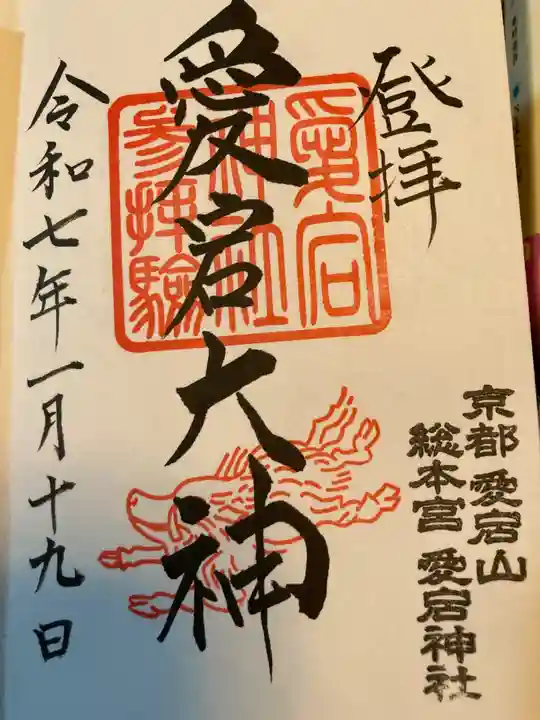 登拝
愛宕
神社
参拝驗
愛宕大神
令和七年一月十九日
京都愛宕山
総本宮愛宕神社